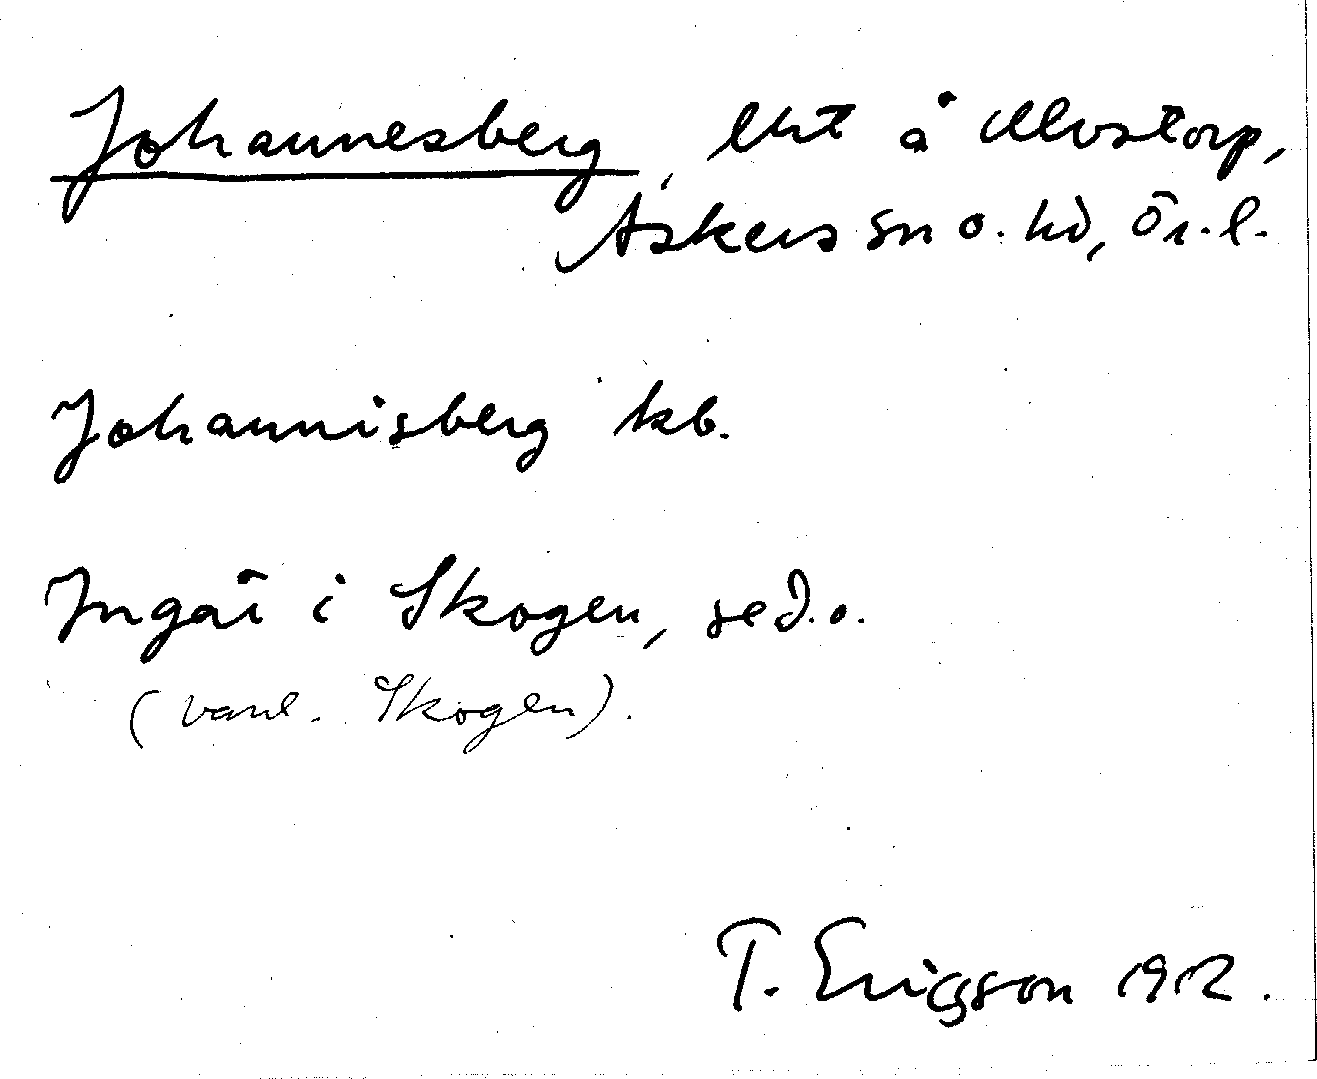 Johannesberg, lht å Alvstorp,
Askers sn o. hd, Ör. l.
Johannisberg kb.
Ingår i Skogen, se d. o.
(vanl. Skogen).
T. Ericsson 1912.